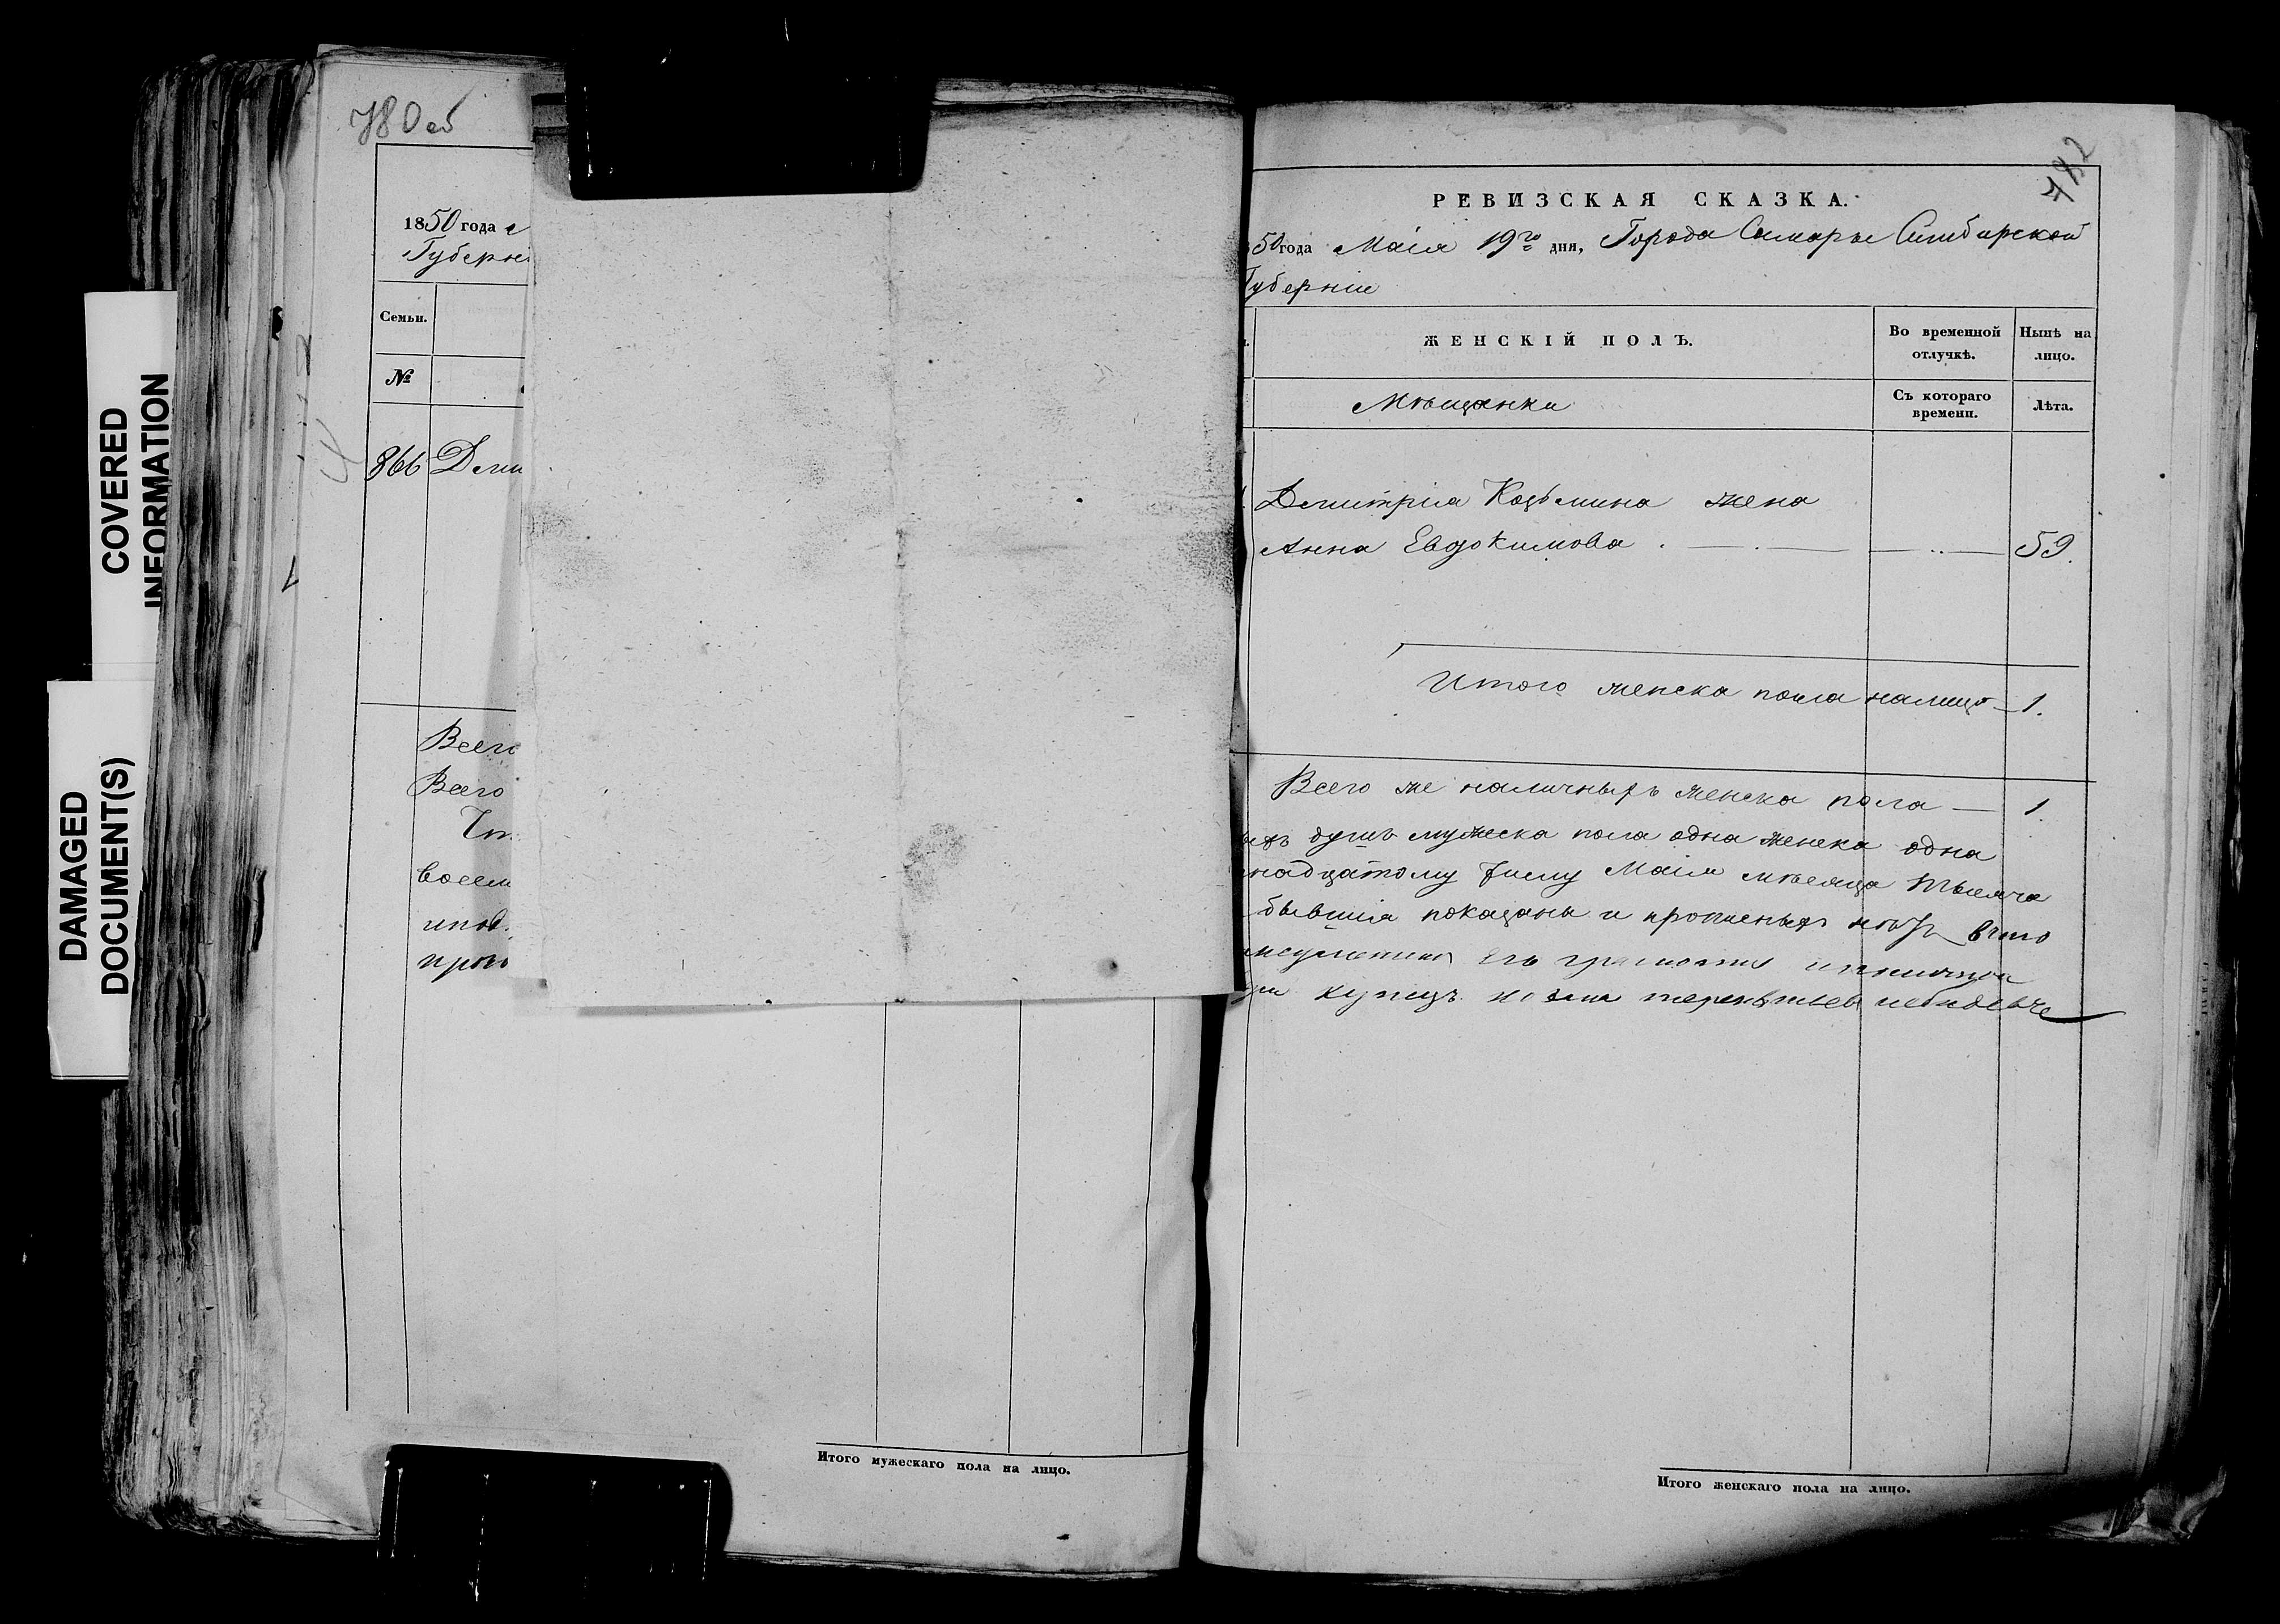 COVERED
INFORMATION
DAMAGED
DOCUMENT(S)
780 об
1850 года
Губерні
Семьи.
№
866 Дми
Всего
Всего
восем
Итого мужескаго пола на лицо.
782
РЕВИЗСКАЯ СКАЗКА.
50 года Маія 19го дня, Города Самары Симбирской
Губерніи
ЖЕНСКІЙ ПОЛЪ.
Во временной отлучкѣ.
Нынѣ на лицо.
Мѣщанки
Съ котораго времени.
Лѣта.
Дмитрія Козьмина жена
Анна Евдокимова 59.
Итого женска пола налицо 1.
Всего же наличныхъ женска пола — 1.
душъ мужеска пола одна женска одна
надцатому числу Маія мѣсяца тысяча
бывшія показаны и прописныхъ нѣтъ вчемъ
купецъ
Итого женскаго пола на лицо.